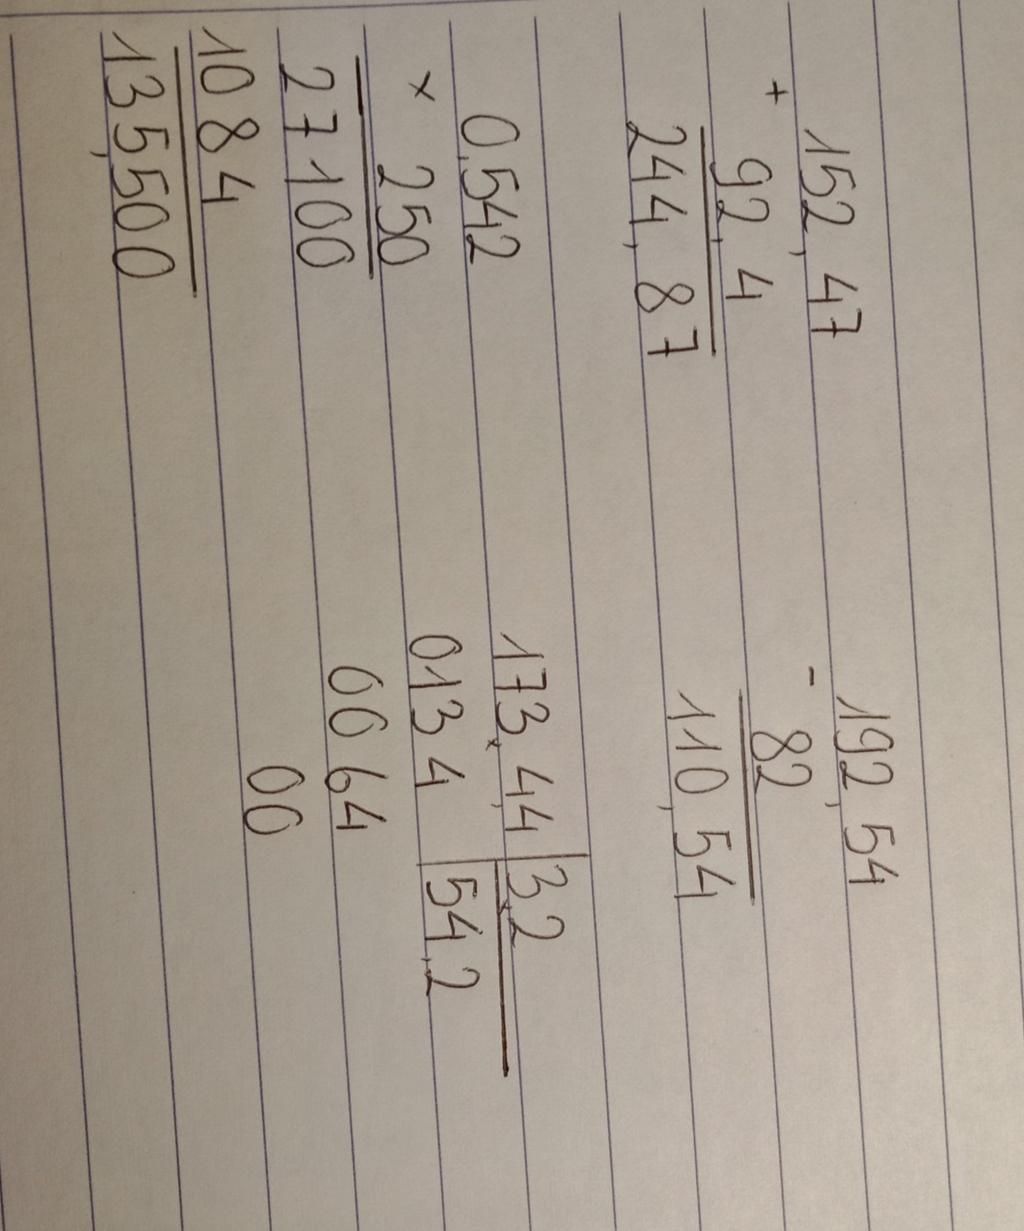 152,47
+ 92,4
244,87
192,54
- 82
110,54
0,542
x 250
27100
1084
135,500
173,44 3,2
0134 54,2
0064
00